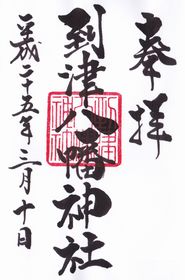 奉拝
到津八幡神社
平成二十五年三月十日